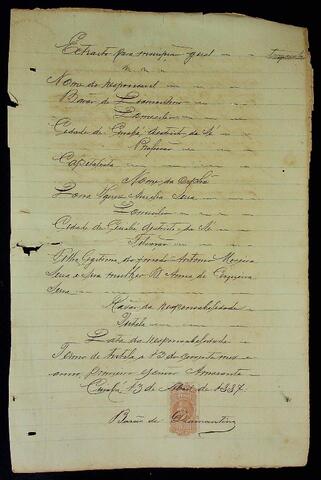 Extracto para inscripção geral
Nome do Responsavel
Barão de Diamantino
Domicilio
Cidade de Cuiabá districto da Sé
Profissão
Capitalista
Nome da Orphã
Dona Amelia Sena
Domicilio
Cidade de Cuiabá districto da Sé
Filiação
Filha legitima do finado Antonio Moreira
Sena e sua mulher D. Anna de Cerqueira
Sena
Razão da responsabilidade
Tutela
Data da responsabilidade
Termo de tutela a 13 do corrente mez e
anno, primeiro
Cuiabá 13 de Abril de 1887.
Barão de Diamantino